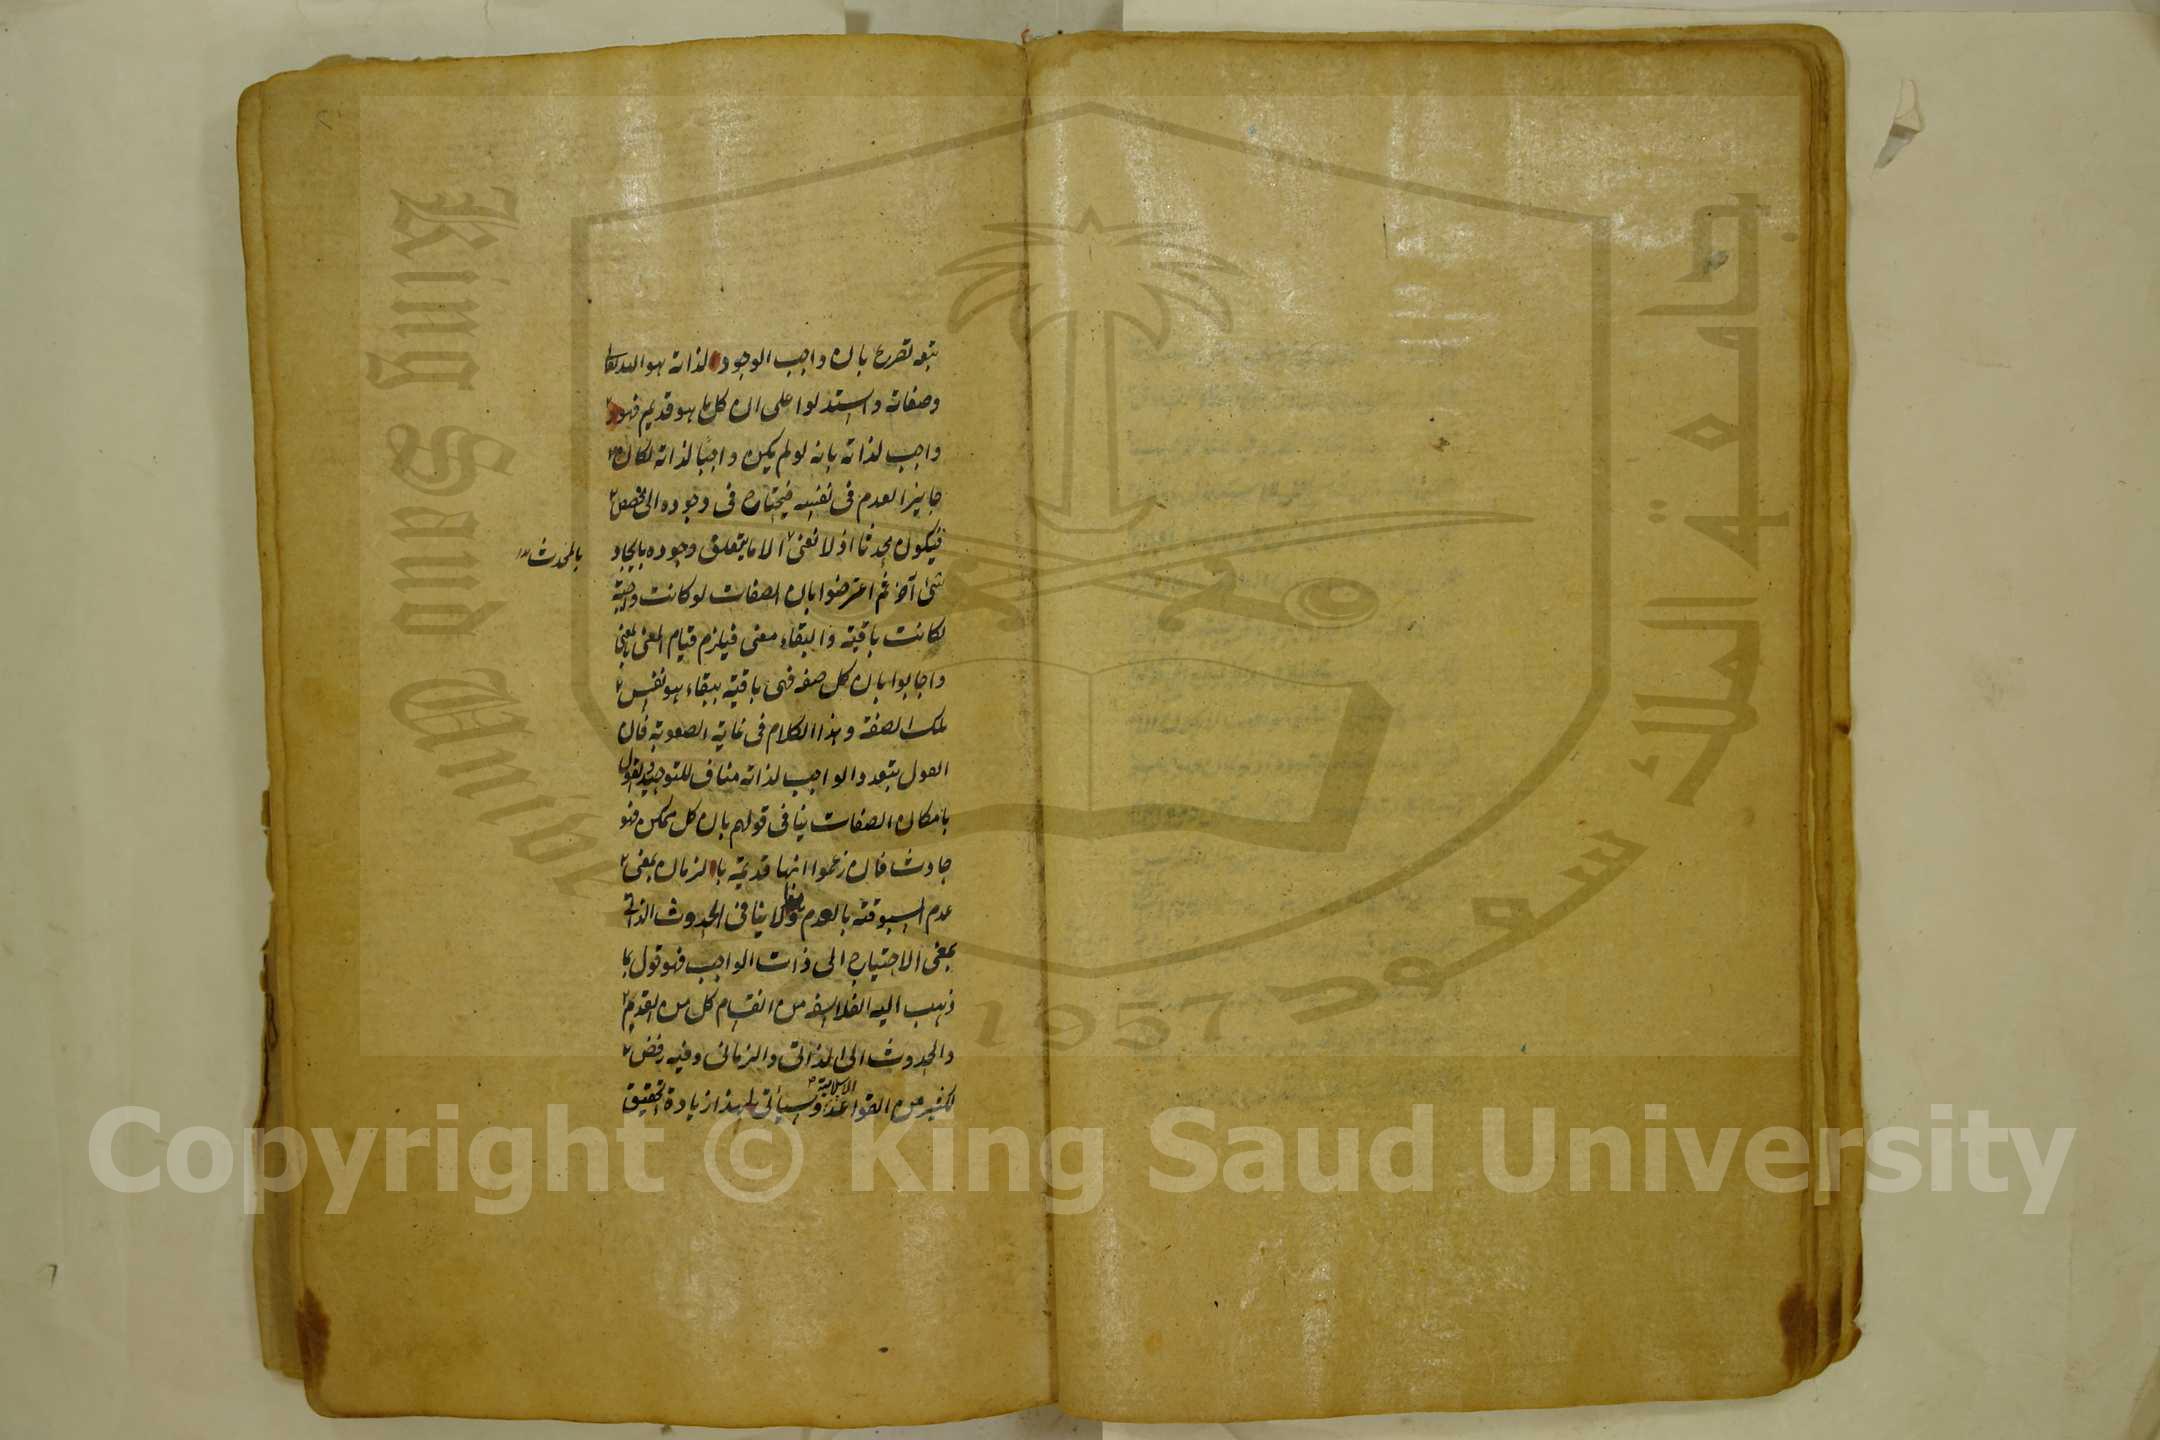 تبعه تصريح بان واجب الوجود لذاته هو الله تعالى
وصفاته واستدلوا على ان كل ما هو قديم فهو
واجب لذاته بانه لو لم يكن واجبا لذاته لكان
جايز العدم فى نفسه فيحتاج فى وجوده الى مخصص
فيكون محدثا اذ لا نعنى الا ما يتعلق وجوده بايجاد
بالمحدث
شئ آخر ثم اعترضوا بان الصفات لو كانت واجبة
لكانت باقية والبقاء معنى فيلزم قيام المعنى بالمعنى
واجابوا بان كل صفه فهى باقية ببقاء هو نفس
تلك الصفة وهذا الكلام فى غاية الصعوبة فان
القول بتعدد الواجب لذاته مناف للتوحيد والقول
بامكان الصفات ينافى قولهم بان كل ممكن فهو
حادث فان زعموا انها قديمة بالزمان بمعنى
عدم المسبوقية بالعدم وهذا لا ينافى الحدوث الذاتى
بمعنى الاحتياج الى ذات الواجب فهو قول بما
ذهب اليه الفلاسفه من انقسام كل من القديم
والحدوث الى الذاتى والزمانى وفيه رفض
لكثير من القواعد الاسلامية وسيأتى لهذا زيادة تحقيق
King Saud University
جامعة الملك سعود
1957
Copyright © King Saud University